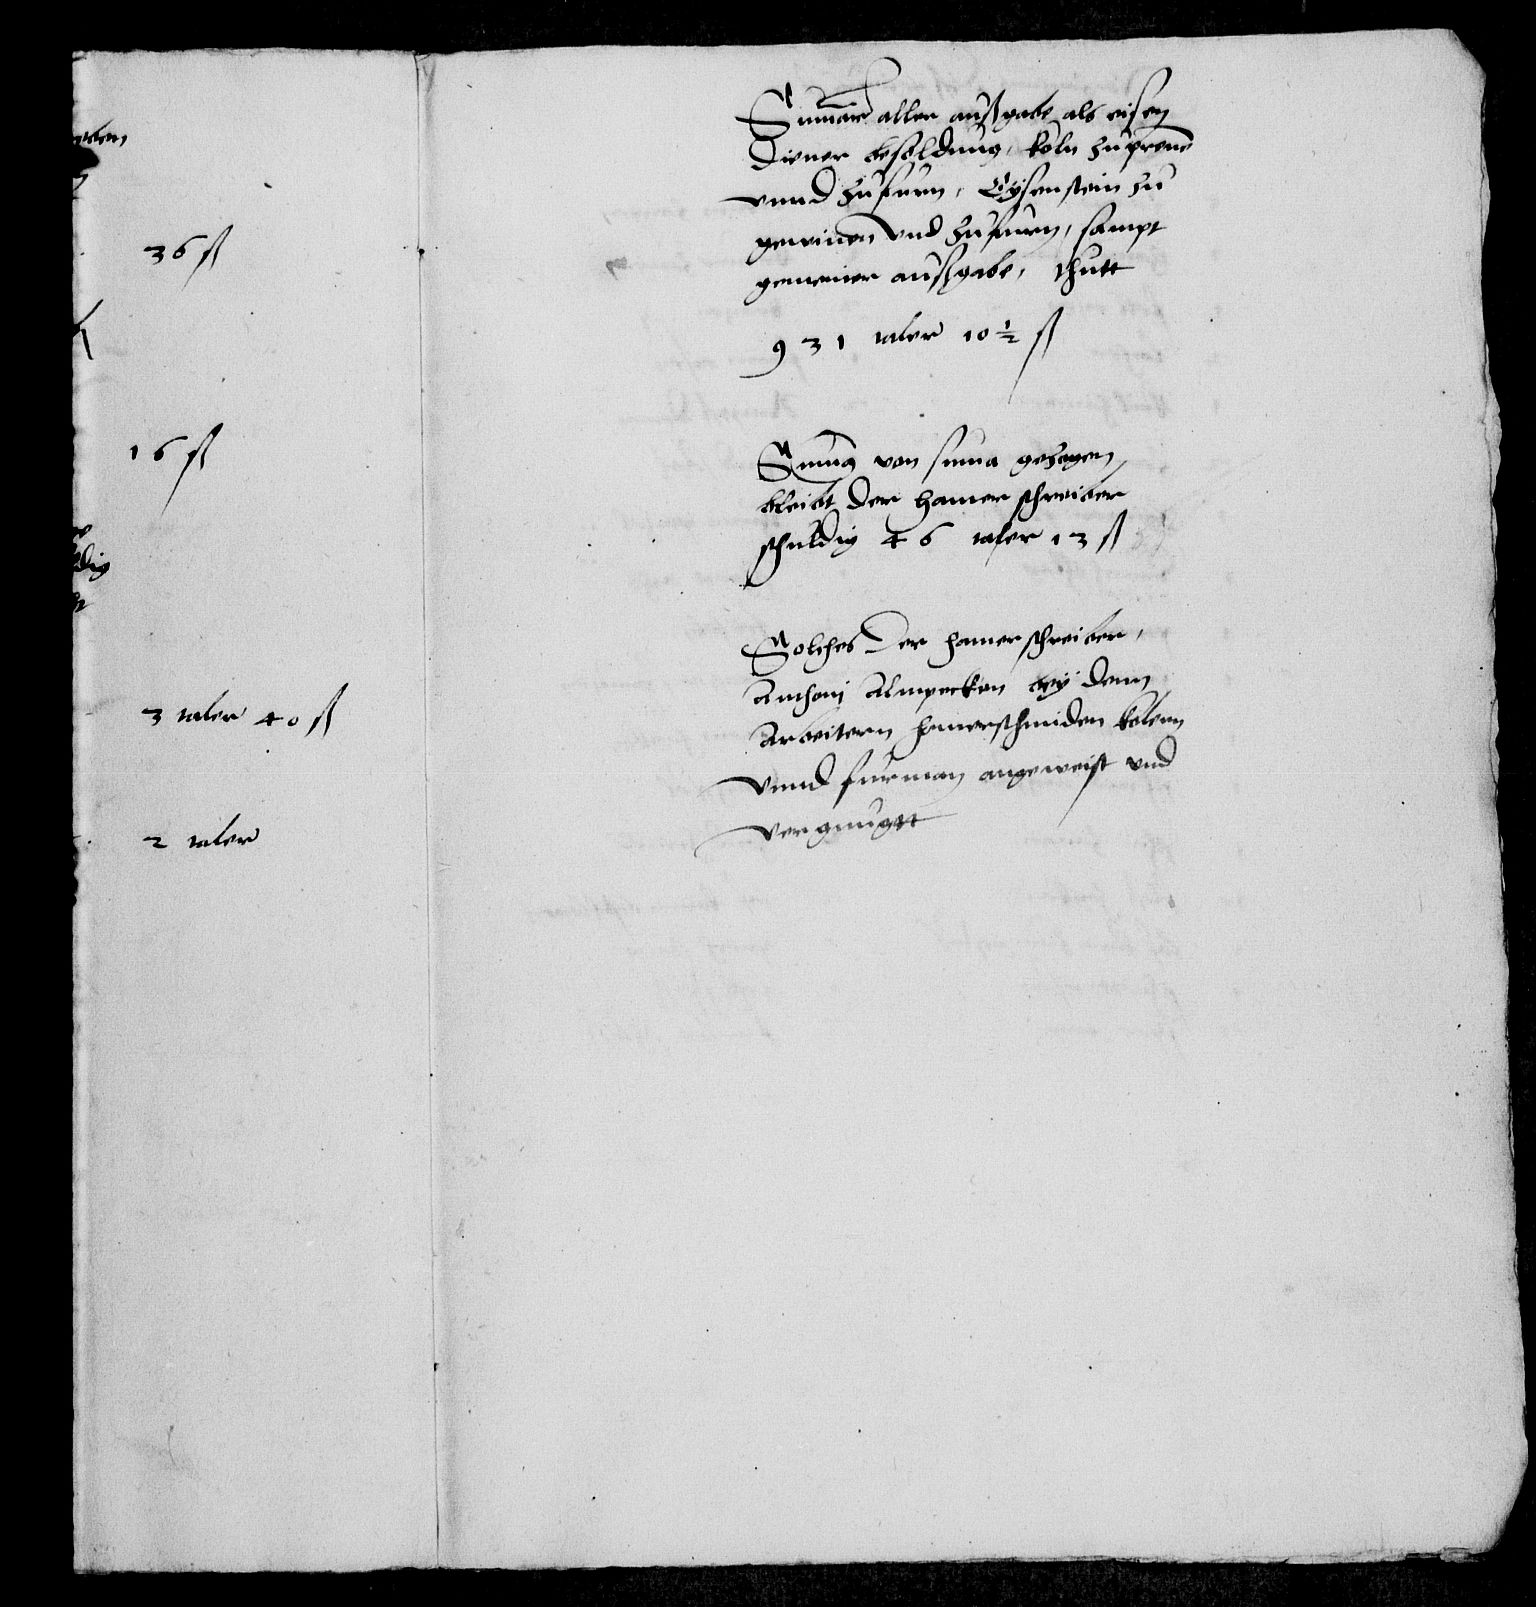 36 ß
16 ß
3 taler 40 ß
2 taler
Sumarie aller außgabe als eisen
diener besoldung, koln zuprenen
vnnd zufurn, Eysenstein zu
gewinen vnd zufurn, sampt
gemeiner außgabe, thutt
931 taler 10 ½ ß
Suma von suma gezogen
bleibt der hamer schreiber
schuldig 46 taler 13 ß
Solches der hamerschreiber,
Anthonj bey denn
Arbeitern hamerschmiden kolern
vnnd furman angeweist vnd
vergnugtt